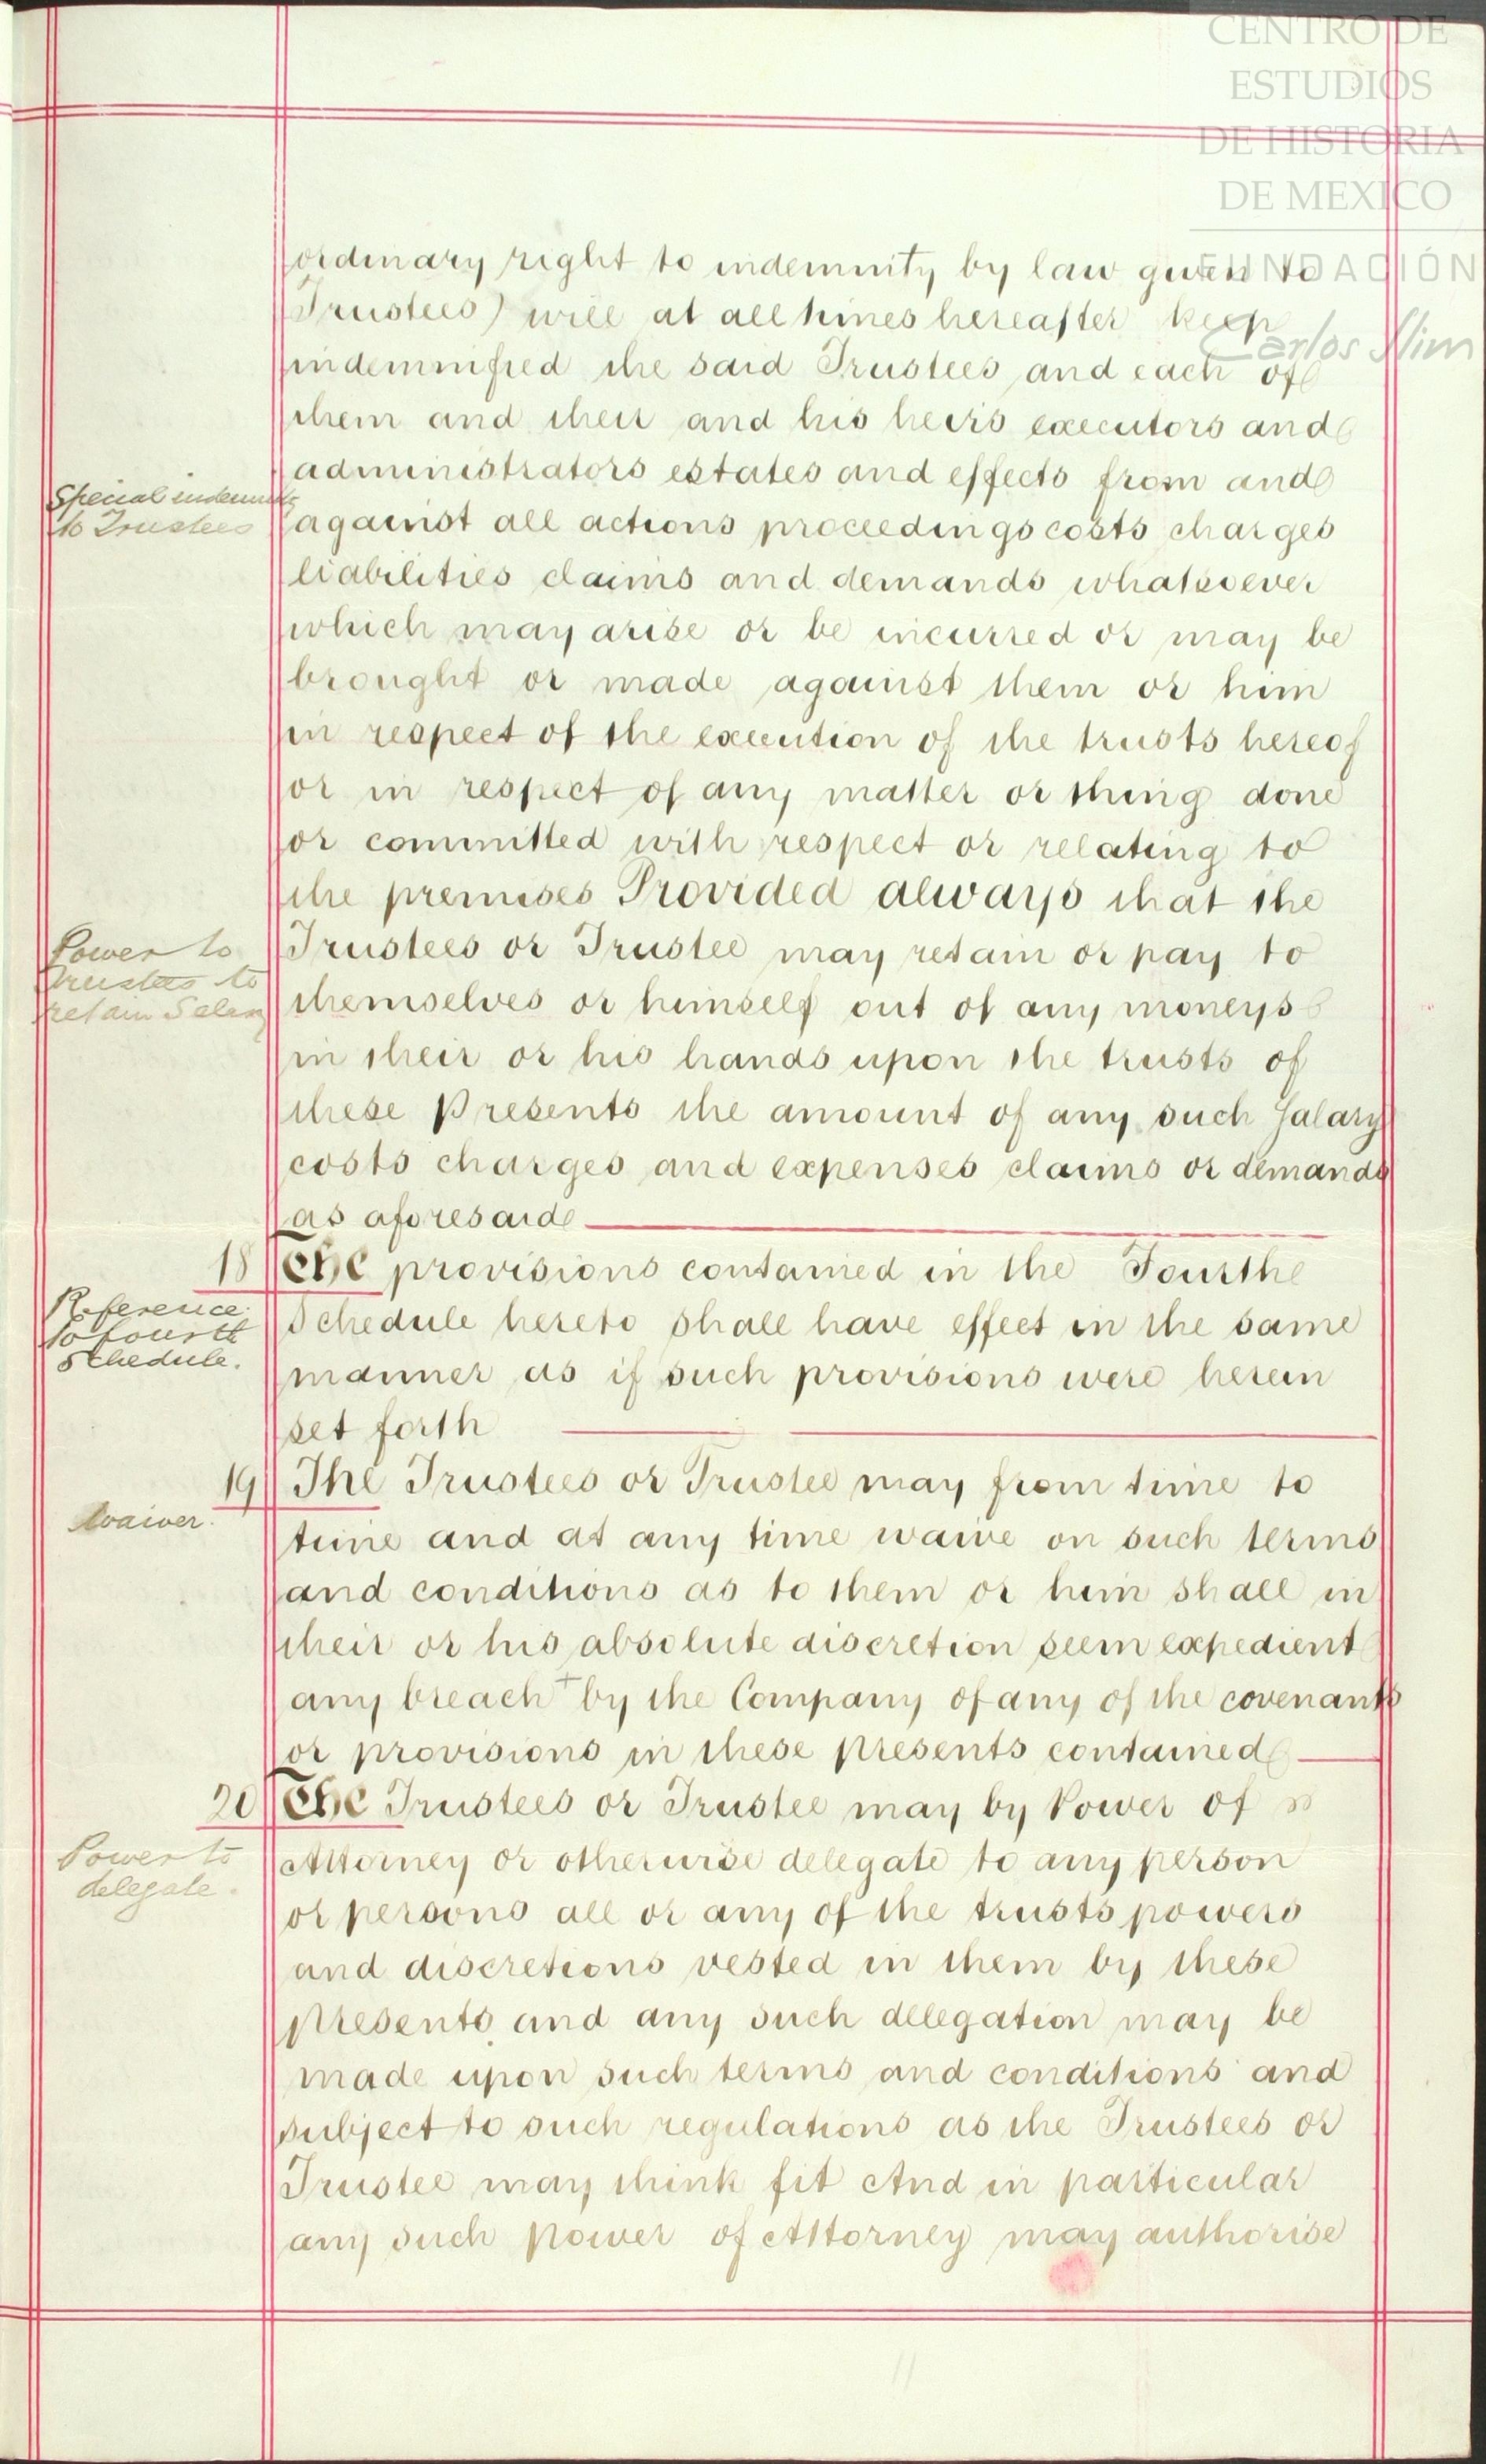 CENTRO DE
ESTUDIOS
DE HISTORIA
DE MEXICO
FUNDACIÓN
Carlos Slim
ordinary right to indemnity by law given to
Trustees) will at all times hereafter keep
indemnified the said Trustees and each of
them and their and his heirs executors and
administrators estates and effects from and
Special indemnity
to Trustees
against all actions proceedings costs charges
liabilities claims and demands whatsoever
which may arise or be incurred or may be
brought or made against them or him
in respect of the execution of the trusts hereof
or in respect of any matter or thing done
or committed with respect or relating to
the premises Provided always that the
Power to
Trustees to
retain Salary
Trustees or Trustee may retain or pay to
themselves or himself out of any moneys
in their or his hands upon the trusts of
these Presents the amount of any such Salary
costs charges and expenses claims or demands
as aforesaid
18 The provisions contained in the Fourth
Reference
to fourth
Schedule.
Schedule hereto shall have effect in the same
manner as if such provisions were herein
set forth
19 The Trustees or Trustee may from time to
Waiver.
time and at any time waive on such terms
and conditions as to them or him shall in
their or his absolute discretion seem expedient
any breach + by the Company of any of the covenants
or provisions in these presents contained
20 The Trustees or Trustee may by Power of
Power to
delegate.
Attorney or otherwise delegate to any person
or persons all or any of the trusts powers
and discretions vested in them by these
presents and any such delegation may be
made upon such terms and conditions and
subject to such regulations as the Trustees or
Trustee may think fit And in particular
any such Power of Attorney may authorise
11